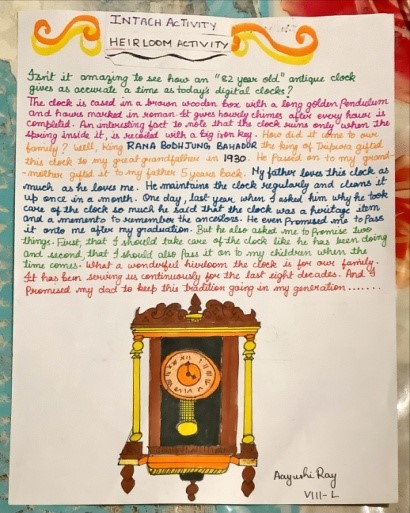 INTACH ACTIVITY
HEIRLOOM ACTIVITY
Isn't it amazing to see how an "82 year old" antique clock
gives as accurate a time as today's digital clocks?
The clock is cased in a brown wooden box with a long golden Pendulum
and hours marked in roman. It gives hourly chimes after every hour is
completed. An interesting fact to note that the clock runs only when the
spring inside it, is reciled with a big iron key. How did it come to our
family? Well, King RANA BODHJUNG BAHADUR the king of Tripura gifted
this clock to my great grandfather in 1930. He Passed on to my grand
-mother gifted it to my father 5 years back. My father loves this clock as
much as he loves me. He maintains the clock regularly and cleans it
up once in a month. One day, last year when I asked him why he took
care of the clock so much he said that the clock was a heritage item
and a momento to remember the ancestors. He even Promised me to Pass
it onto me after my graduation. But he also asked me to Promise two
things. First, that I should take care of the clock like he has been doing
and second that I should also pass it on to my children when the
time comes. What a wonderful hierloom the clock is for our family.
It has been serving us continuously for the last eight decades. And I
Promised my dad to keep this tradition going in my generation.......
Aayushi Ray
VIII-L